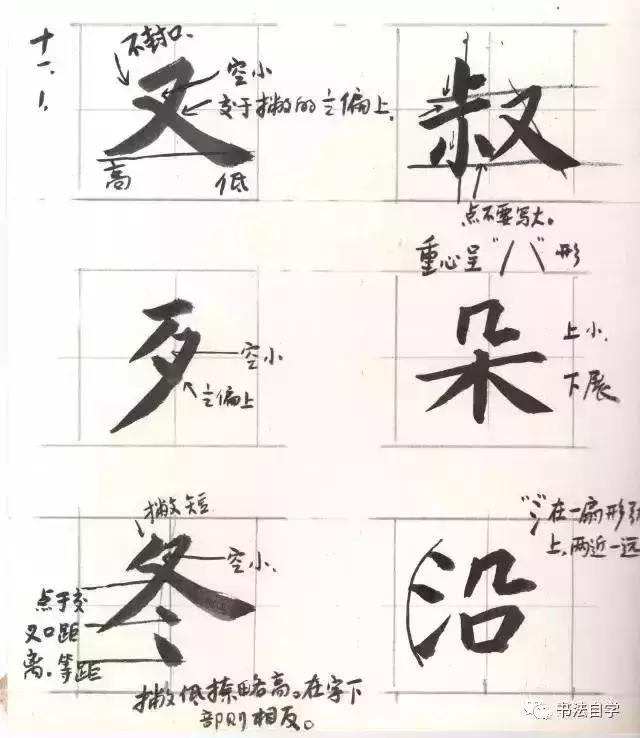 十一.1.
不封口.
又
空小
交于撇的½偏上.
高
低
叔
点不要写大。
重心呈"八"形
歹
空小
½偏上
朵
上小.
下展
撇短
冬
空小.
点于交
叉口距
离.等距
撇低捺略高。在字下
部则相反。
"氵"在一扇形
上,两近一远
沿
书法自学